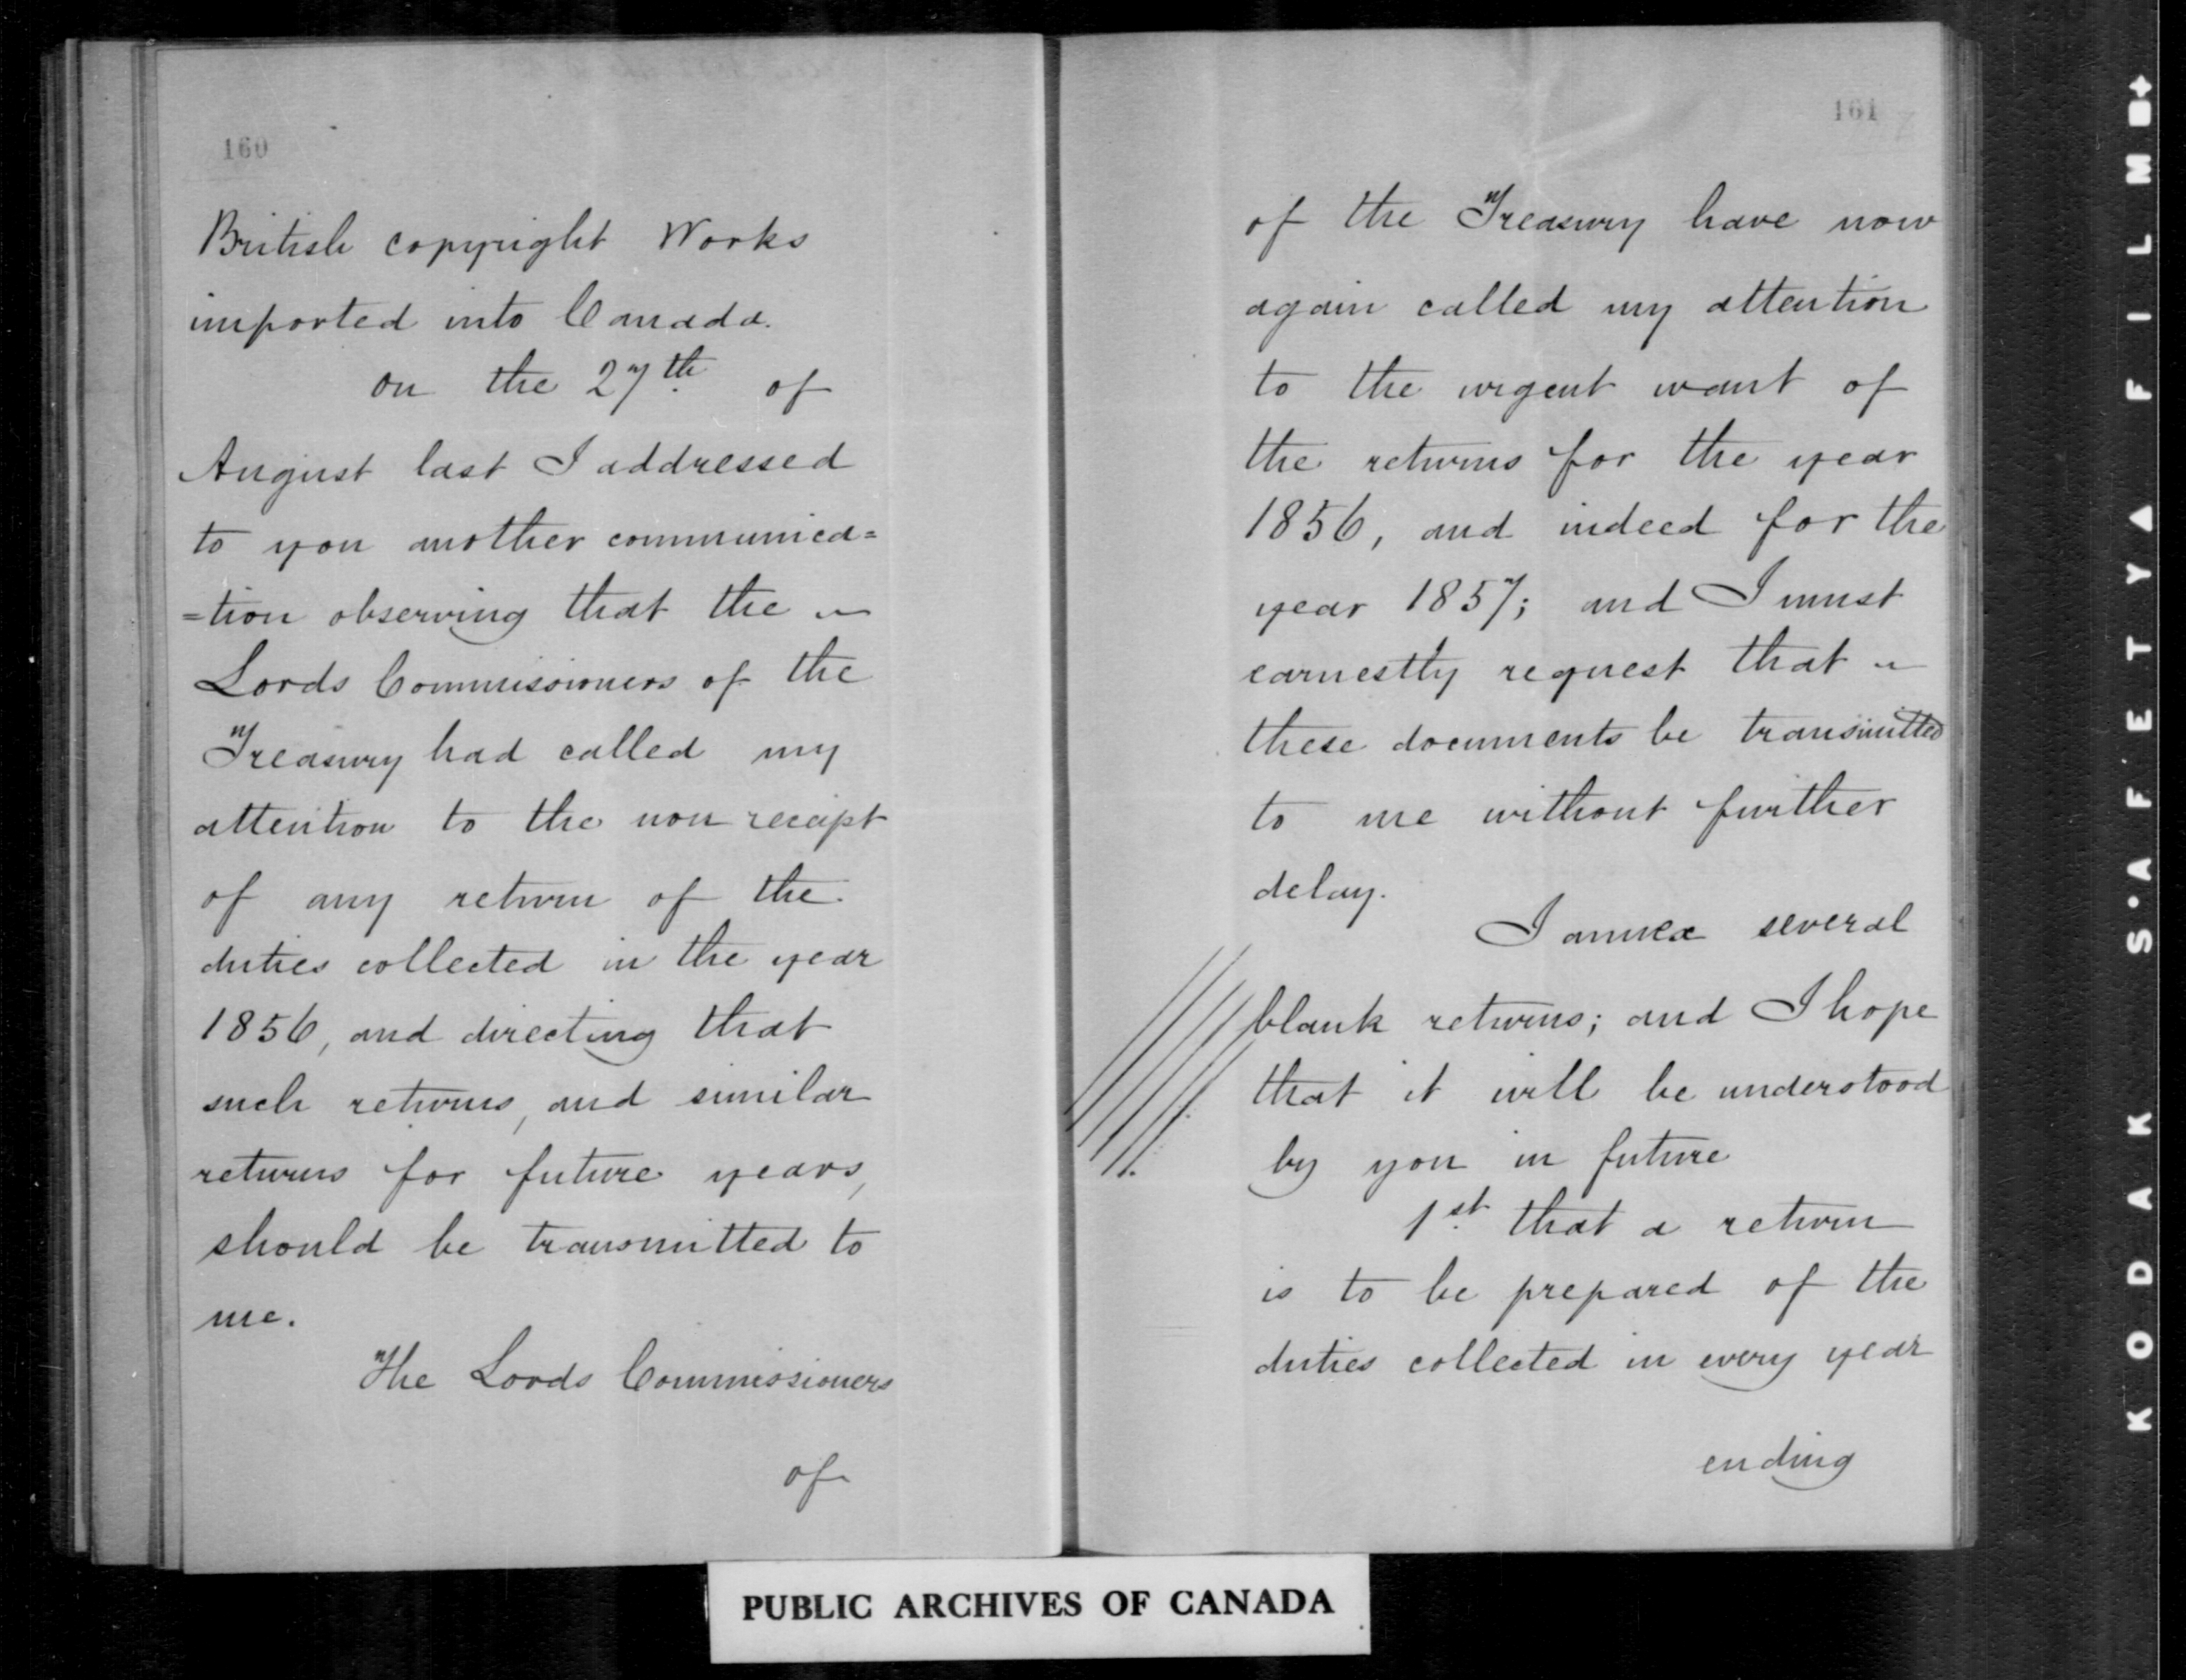 160
British copyright Works
imported into Canada.
On the 27th. of
August last I addressed
to you another communica=
=tion observing that the
Lords Commissioners of the
Treasury had called my
attention to the non receipt
of any return of the
duties collected in the year
1856, and directing that
such returns, and similar
returns for future years,
should be transmitted to
me.
The Lords Commissioners
of
161
of the Treasury have now
again called my attention
to the urgent want of
the returns for the year
1856, and indeed for the
year 1857; and I must
earnestly request that
these documents be transmitted
to me without further
delay.
I annex several
blank returns; and I hope
that it will be understood
by you in future
1st. that a return
is to be prepared of the
duties collected in every year
ending
PUBLIC ARCHIVES OF CANADA
KODAK S.AFETY FILM